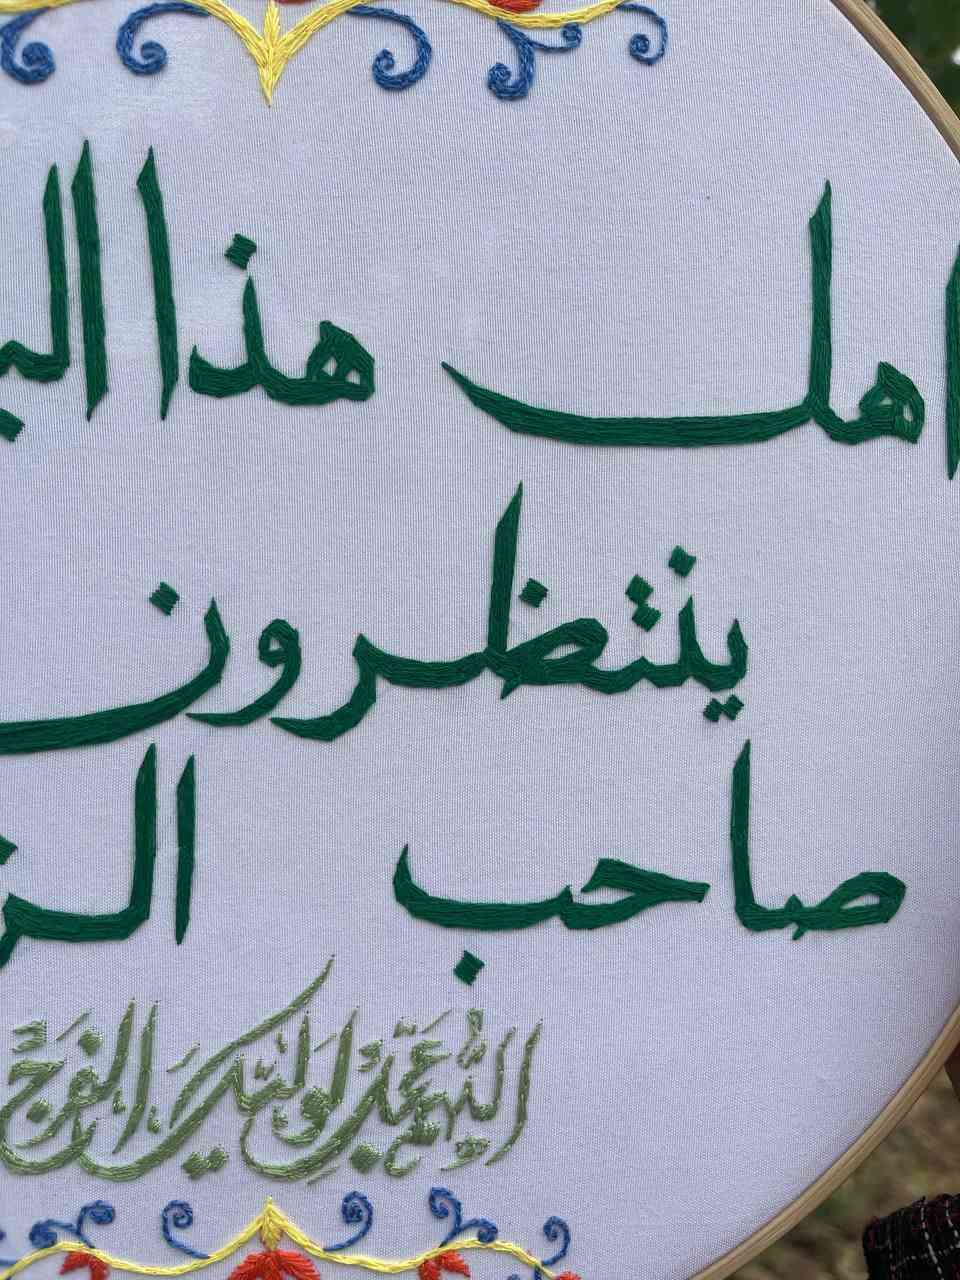 اهل هذا
ينتظرون
صاحب
اللهم عجل لوليك الفرج